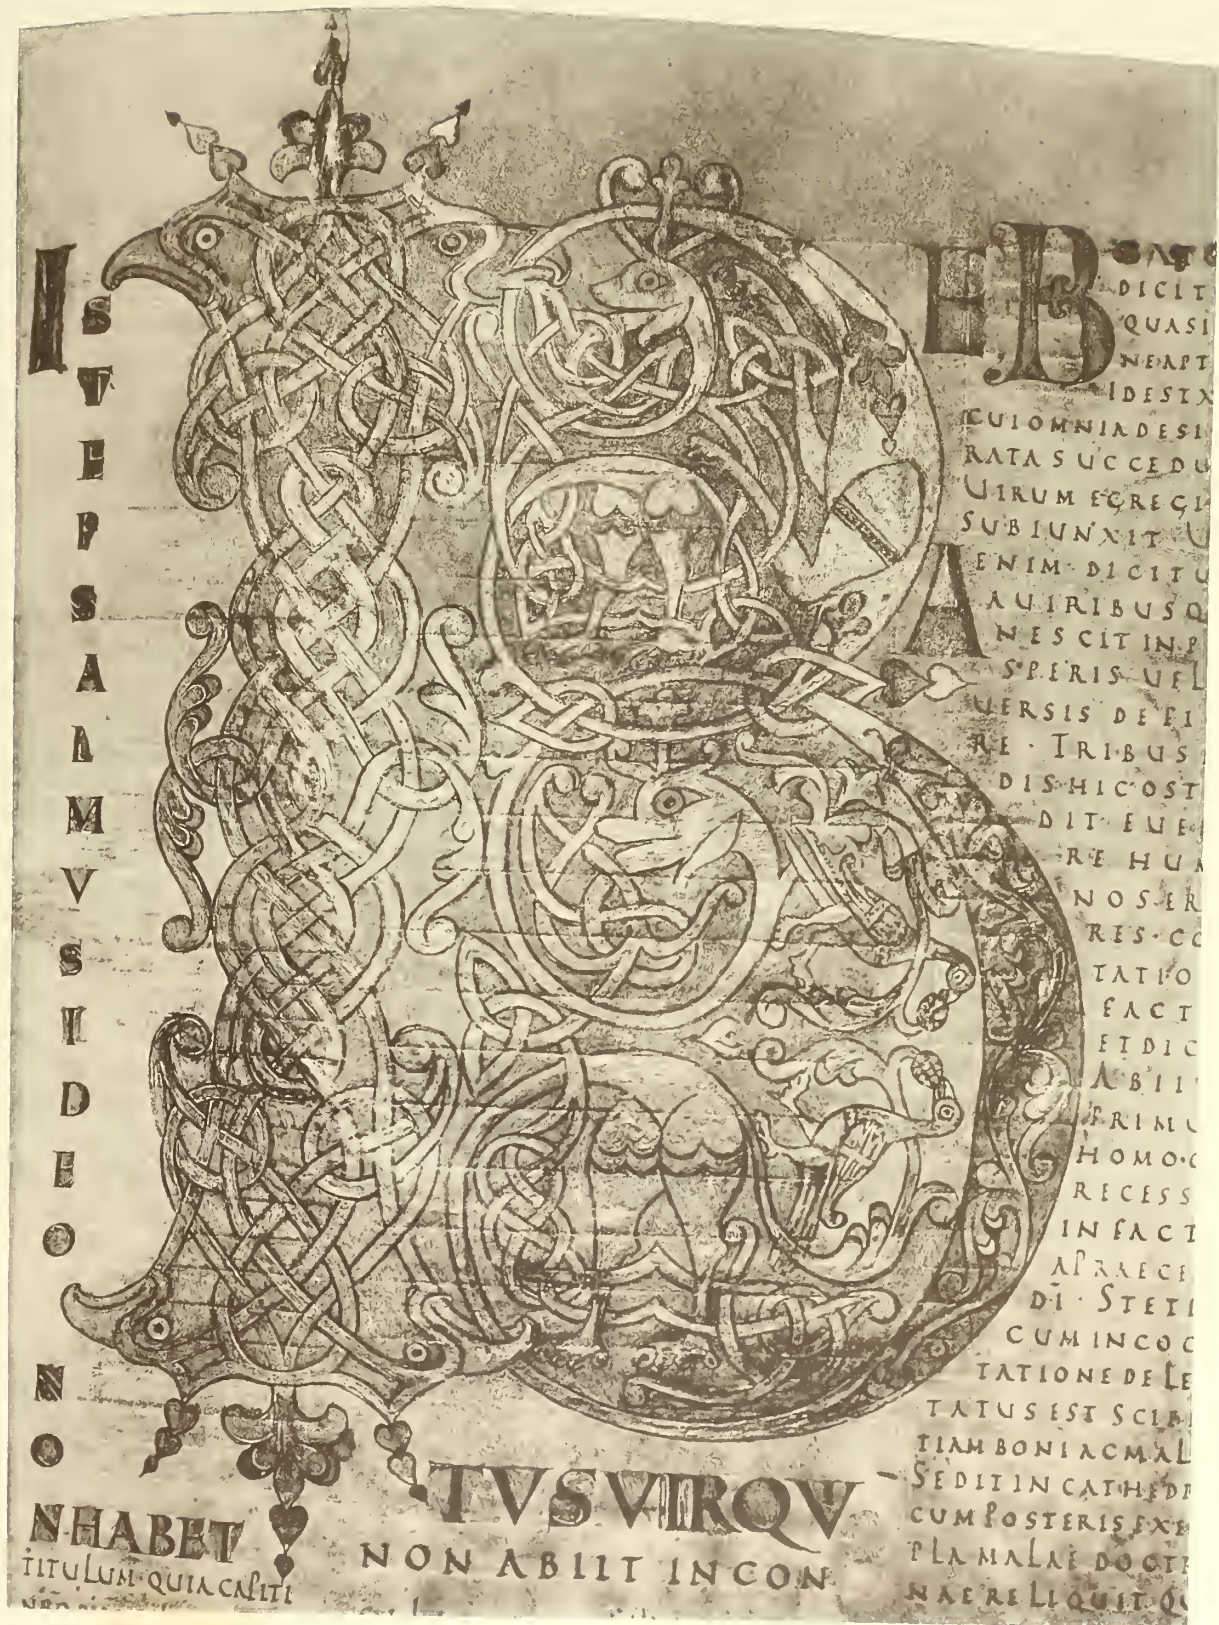 I
S
T
E
P
S
A
L
M
V
S
I
D
E
O
N
O
NHABET
TITULUM·QUIA CAPITI
B
TVS VIR QV
NON ABIIT IN CON
B
DICIT
QUASI
NE APT
IDEST
CUI OMNIA DESI
RATA SUCCEDU
UIRUM EGREGI
SUBIUNXIT U
ENIM·DICITU
A UIRIBUS Q
NESCIT IN P
SPERIS UEL
UERSIS DEFI
RE·TRIBUS
DIS HIC OST
DIT EUE
RE HU
NOS ER
RES·CO
TATIO
FACT
ET DIC
ABII
PRIMU
HOMO·
RECESS
IN FACT
A PRAECE
DĪ·STETI
CUM IN COG
TATIONE DELE
TATUS EST SCI
TIAM BONI AC MAL
SEDIT IN CATHED
CUM POSTERIS EXE
PLA MALAE DOCT
NAE RELIQUIT QU